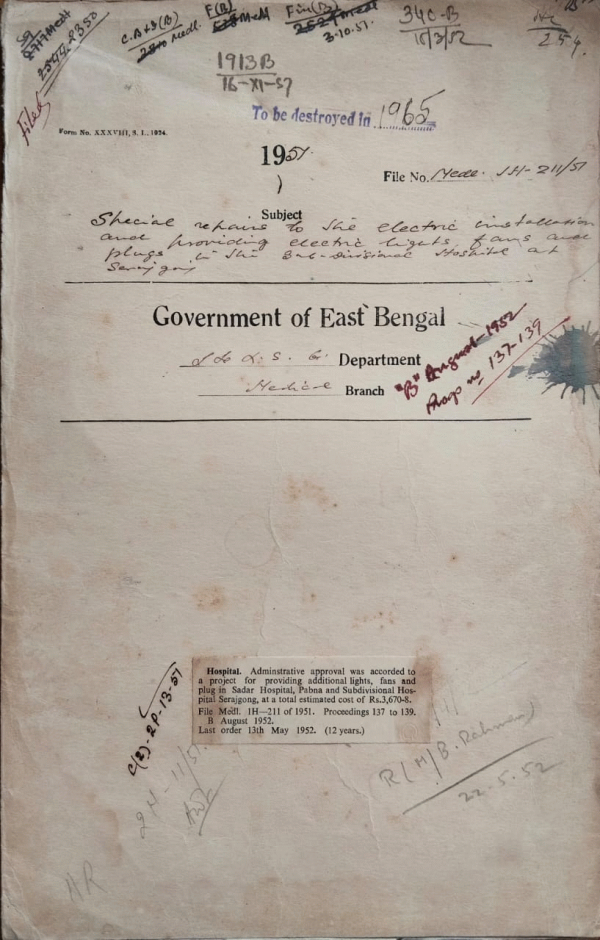 2717 Medl
2349-2350
Filed
C.B+I(B)
Medl.
F(B)
Fin(B)
2524 Medl
3.10.51.
340-B
15/3/52
254.
1913B
16-XI-57
To be destroyed in 1965
Form No. XXXVIII, S. I., 1024.
1951.
File No. Medl. 1H-211/51
Subject
Special repairs to the electric installation
and providing electric lights, fans and
plugs in the Sub-divisional Hospital at
Serajgonj
Government of East Bengal
Department
Medical Branch
"B" August-1952
Prop no 137-139
Hospital. Adminstrative approval was accorded to
a project for providing additional lights, fans and
plug in Sadar Hospital, Pabna and Subdivisional Hos-
pital Serajgong, at a total estimated cost of Rs.3,670-8.
File Medl. 1H—211 of 1951. Proceedings 137 to 139.
B August 1952.
Last order 13th May 1952. (12 years.)
C(2)-2P-13-57
2H-11/51
R(M)B.Rahman
22.5.52
AR